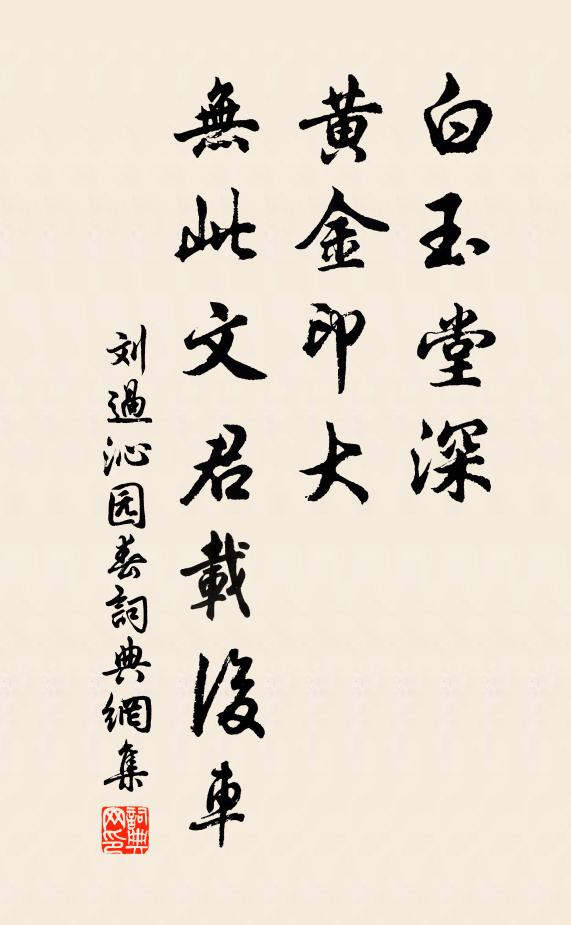 白玉堂深
黄金印大
無此文君載後車
刘過沁园春詞典網集
詞典网印